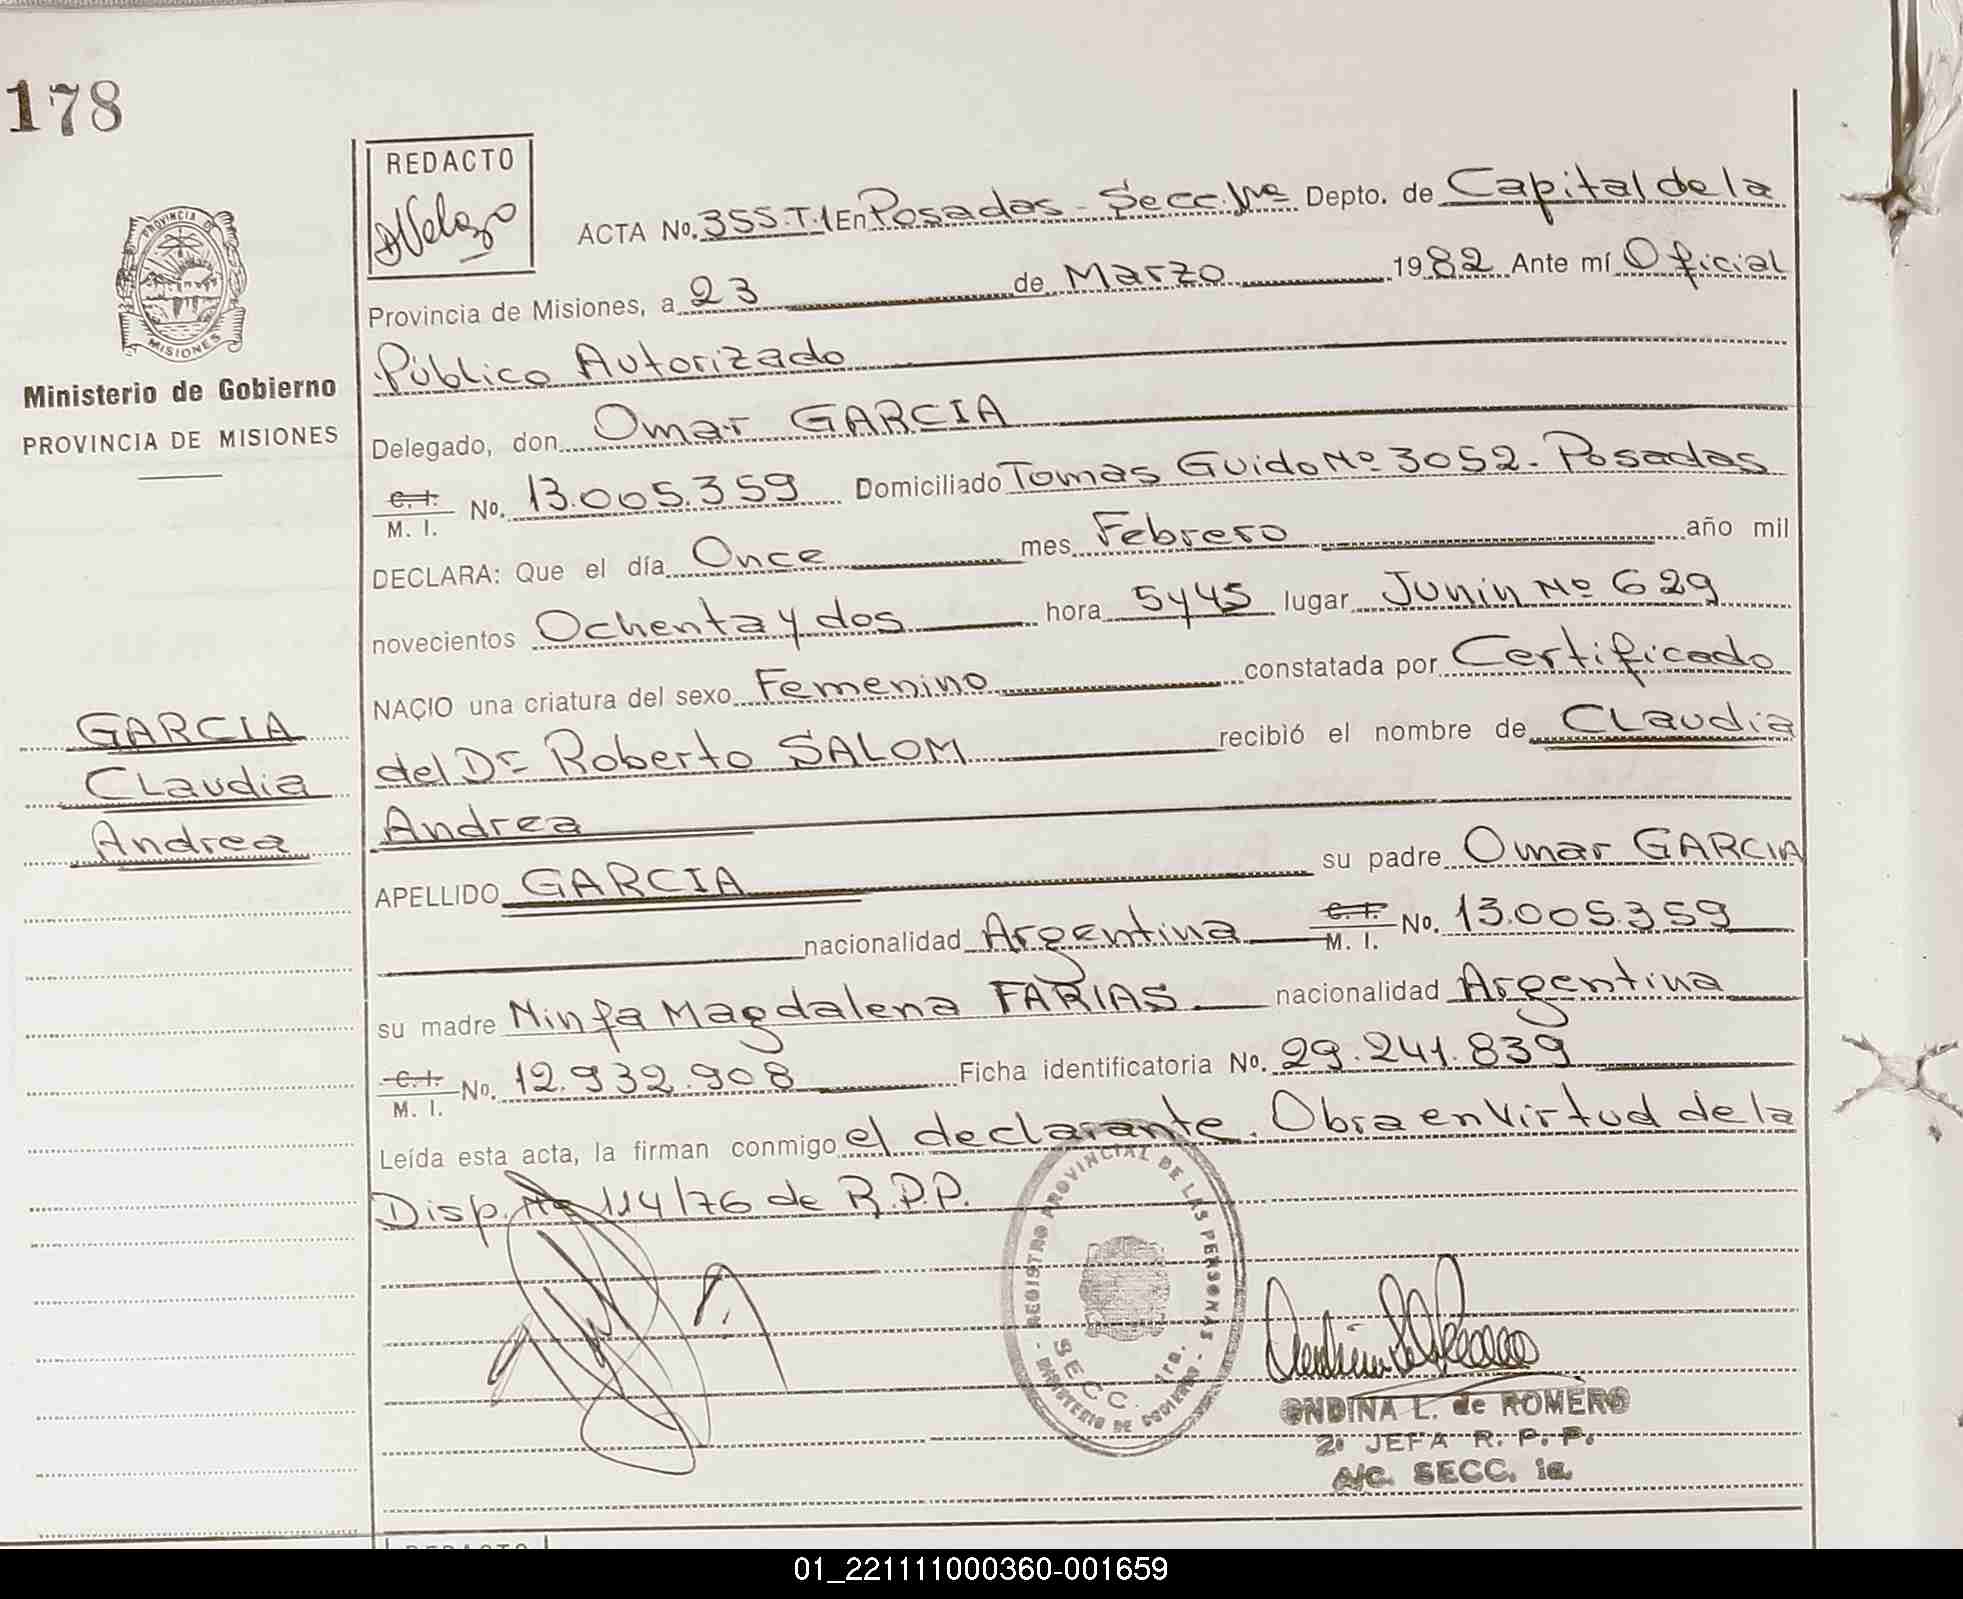 178
REDACTO
ACTA No. 355.T.1 En Posadas - Secc. 1ra Depto. de Capital de la
Provincia de Misiones, a 23 de Marzo 1982 Ante mí Oficial
Público Autorizado
Delegado, don Omar GARCIA
C. I. M. I. No. 13.005.359 Domiciliado Tomas Guido Nº 3052. Posadas
DECLARA: Que el día Once mes Febrero año mil
novecientos Ochenta y dos hora 5 y 45 lugar Junin Nº 629
NACIO una criatura del sexo Femenino constatada por Certificado
del Dr Roberto SALOM recibió el nombre de CLaudia
Andrea
APELLIDO GARCIA su padre Omar GARCIA
nacionalidad Argentina C. I. M. I. No. 13.005.359
su madre Ninfa Magdalena FARIAS nacionalidad Argentina
C. I. M. I. No. 12.932.908 Ficha identificatoria No. 29.241.839
Leída esta acta, la firman conmigo el declarante. Obra en Virtud de la
Disp. Nº 114/76 de R.P.P.
PROVINCIA DE
MISIONES
Ministerio de Gobierno
PROVINCIA DE MISIONES
GARCIA
CLaudia
Andrea
- REGISTRO PROVINCIAL DE LAS PERSONAS -
SECC. 1ra.
MINISTERIO DE GOBIERNO
ONDINA L. de ROMERO
2º JEFA R. P. P.
A/C. SECC. 1a.
REDACTO
01_221111000360-001659